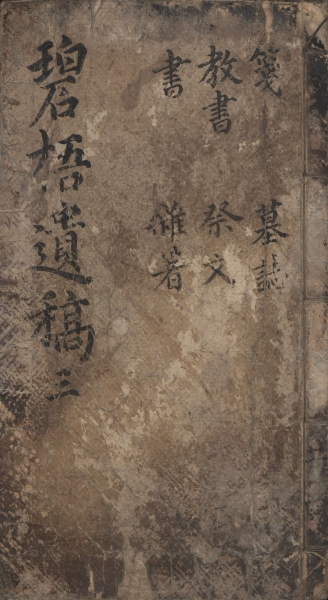 箋 墓誌
教書 祭文
書 雜著
碧梧遺稿 三